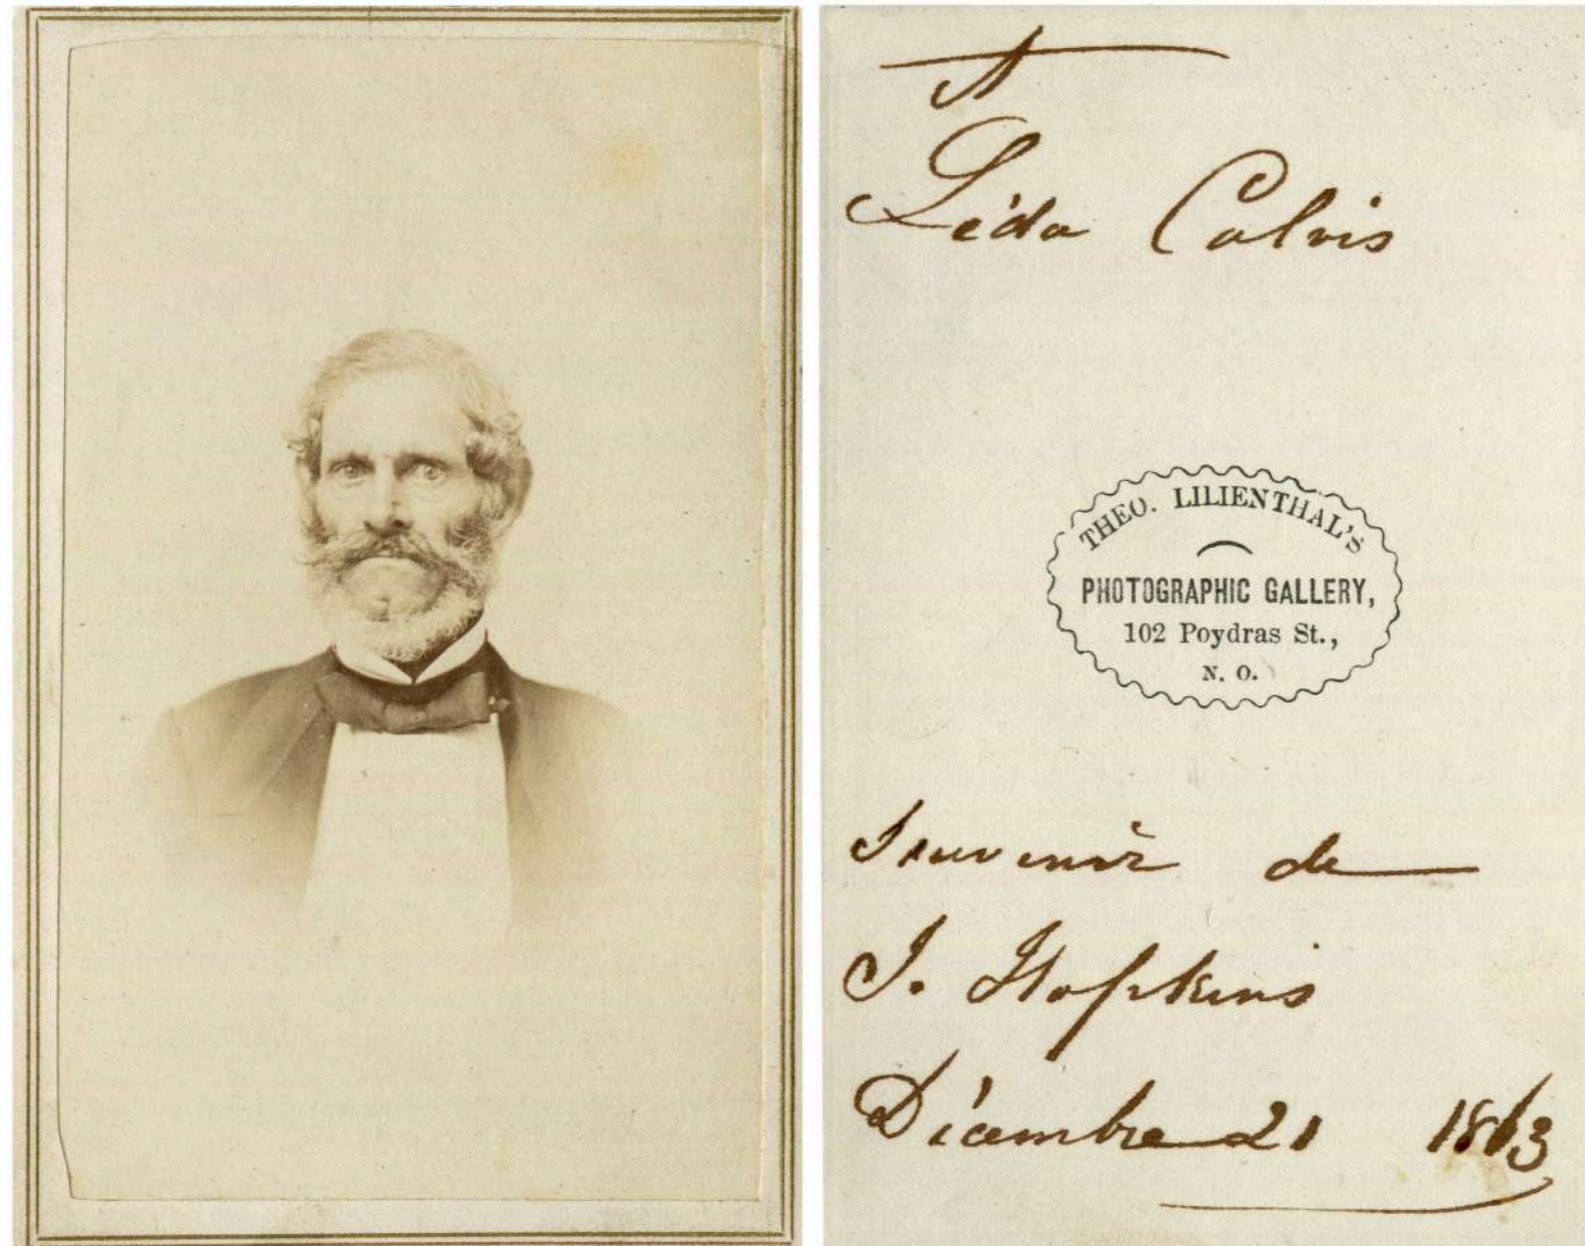 A
Léda Calvis
THEO. LILIENTHAL'S
PHOTOGRAPHIC GALLERY,
102 Poydras St.,
N. O.
Souvenir de
J. Hopkins
Décembre 21 1863